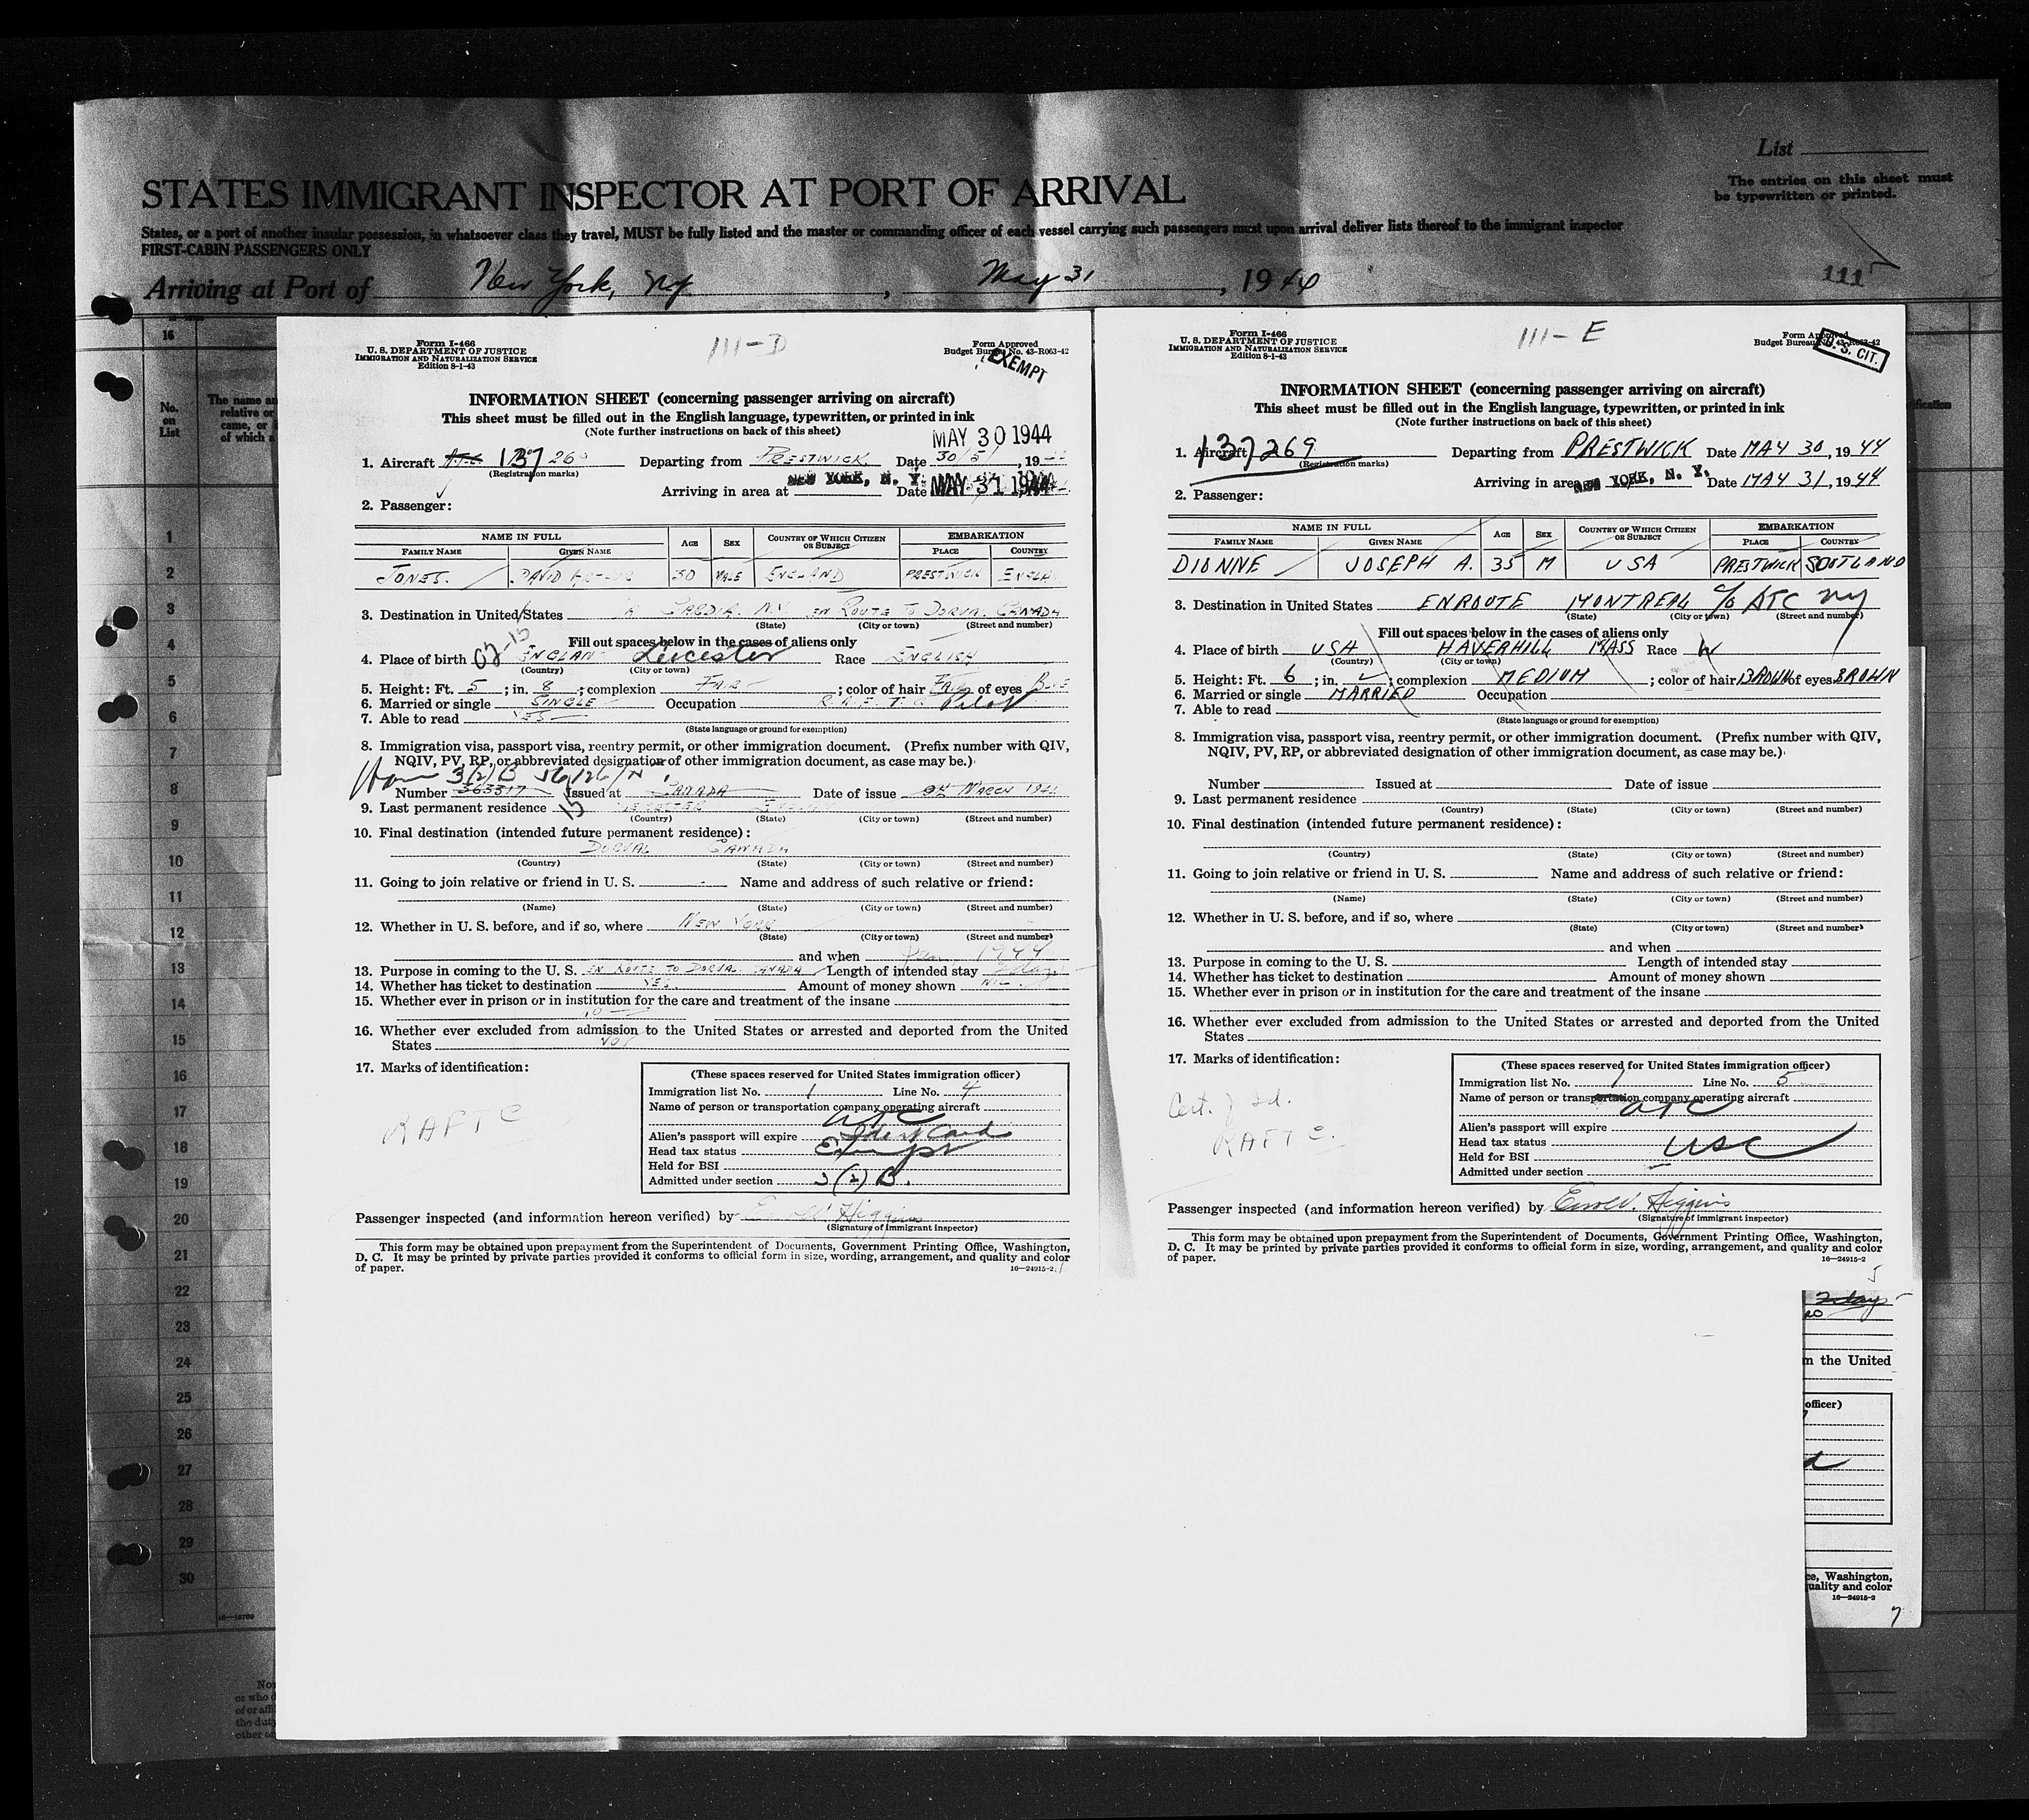 List
The entries on this sheet must
be typewritten or printed.
STATES IMMIGRANT INSPECTOR AT PORT OF ARRIVAL
States, or a port of another insular possession, in whatsoever class they travel, MUST be fully listed and the master or commanding officer of each vessel carrying such passengers must upon arrival deliver lists thereof to the immigrant inspector
FIRST-CABIN PASSENGERS ONLY
Arriving at Port of New York, NY, May 31, 1944
111
16
No.
on
List
The name an
relative or
came, or
of which a
1
2
3
4
5
6
7
8
9
10
11
12
13
14
15
16
17
18
19
20
21
22
23
24
25
26
27
28
29
30
Form I-466
U. S. DEPARTMENT OF JUSTICE
IMMIGRATION AND NATURALIZATION SERVICE
Edition 8-1-43
111-D
Form Approved
Budget Bureau No. 43-R063-42
EXEMPT
INFORMATION SHEET (concerning passenger arriving on aircraft)
This sheet must be filled out in the English language, typewritten, or printed in ink
(Note further instructions on back of this sheet)
MAY 30 1944
1. Aircraft 137 26 Departing from PRESTWICK Date 30/5/, 19
(Registration marks)
Arriving in area at NEW YORK, N. Y. Date MAY 31 1944
2. Passenger:
NAME IN FULL AGE SEX COUNTRY OF WHICH CITIZEN OR SUBJECT EMBARKATION
FAMILY NAME GIVEN NAME PLACE COUNTRY
JONES. DAVID 30 MALE ENGLAND PRESTWICK ENGLA
3. Destination in United States EN ROUTE TO DORVAL CANADA
(State) (City or town) (Street and number)
Fill out spaces below in the cases of aliens only
4. Place of birth ENGLAN Leicester Race ENGLISH
(Country) (City or town)
5. Height: Ft. 5; in. 8; complexion FAIR; color of hair FAIR of eyes
6. Married or single SINGLE Occupation R.A.F.T.C. Pilot
7. Able to read YES
(State language or ground for exemption)
8. Immigration visa, passport visa, reentry permit, or other immigration document. (Prefix number with QIV,
NQIV, PV, RP, or abbreviated designation of other immigration document, as case may be.)
3(2)B
Number 363317 Issued at CANADA Date of issue MARCH
9. Last permanent residence
(Country) (State) (City or town) (Street and number)
10. Final destination (intended future permanent residence):
DORVAL CANADA
(Country) (State) (City or town) (Street and number)
11. Going to join relative or friend in U. S. - Name and address of such relative or friend:
(Name) (State) (City or town) (Street and number)
12. Whether in U. S. before, and if so, where NEW YORK
(State) (City or town) (Street and number)
and when 1944
13. Purpose in coming to the U. S. EN ROUTE TO DORVAL CANADA Length of intended stay 2 days
14. Whether has ticket to destination YES. Amount of money shown NIL
15. Whether ever in prison or in institution for the care and treatment of the insane
16. Whether ever excluded from admission to the United States or arrested and deported from the United
States
17. Marks of identification:
RAFTC
(These spaces reserved for United States immigration officer)
Immigration list No. 1 Line No. 4
Name of person or transportation company operating aircraft
ATC
Alien's passport will expire Ident Card
Head tax status Exempt
Held for BSI
Admitted under section 3(2)B.
Passenger inspected (and information hereon verified) by Errol V. Higgins
(Signature of immigrant inspector)
This form may be obtained upon prepayment from the Superintendent of Documents, Government Printing Office, Washington,
D. C. It may be printed by private parties provided it conforms to official form in size, wording, arrangement, and quality and color
of paper.
16—24915-2
Form I-466
U. S. DEPARTMENT OF JUSTICE
IMMIGRATION AND NATURALIZATION SERVICE
Edition 8-1-43
111-E
Form Approved
Budget Bureau No. 43-R063-42
U. S. CIT.
INFORMATION SHEET (concerning passenger arriving on aircraft)
This sheet must be filled out in the English language, typewritten, or printed in ink
(Note further instructions on back of this sheet)
1. Aircraft 137269 Departing from PRESTWICK Date MAY 30, 1944
(Registration marks)
Arriving in area NEW YORK, N. Y. Date MAY 31, 1944
2. Passenger:
NAME IN FULL AGE SEX COUNTRY OF WHICH CITIZEN OR SUBJECT EMBARKATION
FAMILY NAME GIVEN NAME PLACE COUNTRY
DIONNE JOSEPH A. 35 M USA PRESTWICK SCOTLAND
3. Destination in United States ENROUTE MONTREAL C/o ATC NY
(State) (City or town) (Street and number)
Fill out spaces below in the cases of aliens only
4. Place of birth USA HAVERHILL MASS Race W
(Country) (City or town)
5. Height: Ft. 6; in. ; complexion MEDIUM; color of hair BROWN of eyes BROWN
6. Married or single MARRIED Occupation
7. Able to read
(State language or ground for exemption)
8. Immigration visa, passport visa, reentry permit, or other immigration document. (Prefix number with QIV,
NQIV, PV, RP, or abbreviated designation of other immigration document, as case may be.)
Number Issued at Date of issue
9. Last permanent residence
(Country) (State) (City or town) (Street and number)
10. Final destination (intended future permanent residence):
(Country) (State) (City or town) (Street and number)
11. Going to join relative or friend in U. S. Name and address of such relative or friend:
(Name) (State) (City or town) (Street and number)
12. Whether in U. S. before, and if so, where
(State) (City or town) (Street and number)
and when
13. Purpose in coming to the U. S. Length of intended stay
14. Whether has ticket to destination Amount of money shown
15. Whether ever in prison or in institution for the care and treatment of the insane
16. Whether ever excluded from admission to the United States or arrested and deported from the United
States
17. Marks of identification:
Cert. of Id.
RAFTC.
(These spaces reserved for United States immigration officer)
Immigration list No. 1 Line No. 5
Name of person or transportation company operating aircraft
ATC
Alien's passport will expire
Head tax status USC
Held for BSI
Admitted under section
Passenger inspected (and information hereon verified) by Errol V. Higgins
(Signature of immigrant inspector)
This form may be obtained upon prepayment from the Superintendent of Documents, Government Printing Office, Washington,
D. C. It may be printed by private parties provided it conforms to official form in size, wording, arrangement, and quality and color
of paper.
16—24915-2
5
2 days
m the United
officer)
ce, Washington,
uality and color
16—24915-2
7
No
or who d
of or affi
the duty
other or